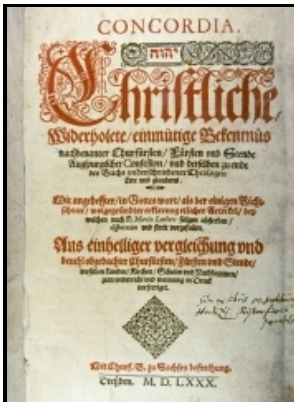 CONCORDIA.
יהוה
Christliche,
Widerholete / einmütige Bekenntnüs
nachbenanter Churfürsten / Fürsten vnd Stende
Augspurgischer Confession / vnd derselben zu ende
des Buchs vnderschriebener Theologen
Lere vnd glaubens.
Mit angeheffter / in Gottes wort / als der einigen Richt-
schnur / wolgegründter erklerung etlicher Artickel / bey
welchen nach D. Martin Luthers seligen absterben /
disputation vnd streit vorgefallen.
Aus einhelliger vergleichung vnd
beuehl obgedachter Churfürsten / Fürsten vnd Stende /
derselben Landen / Kirchen / Schulen vnd Nachkommen /
zum vnderricht vnd warnung in Druck
vorfertiget.
Mit Churf. G. zu Sachsen befreihung.
Dreßden. M. D. LXXX.